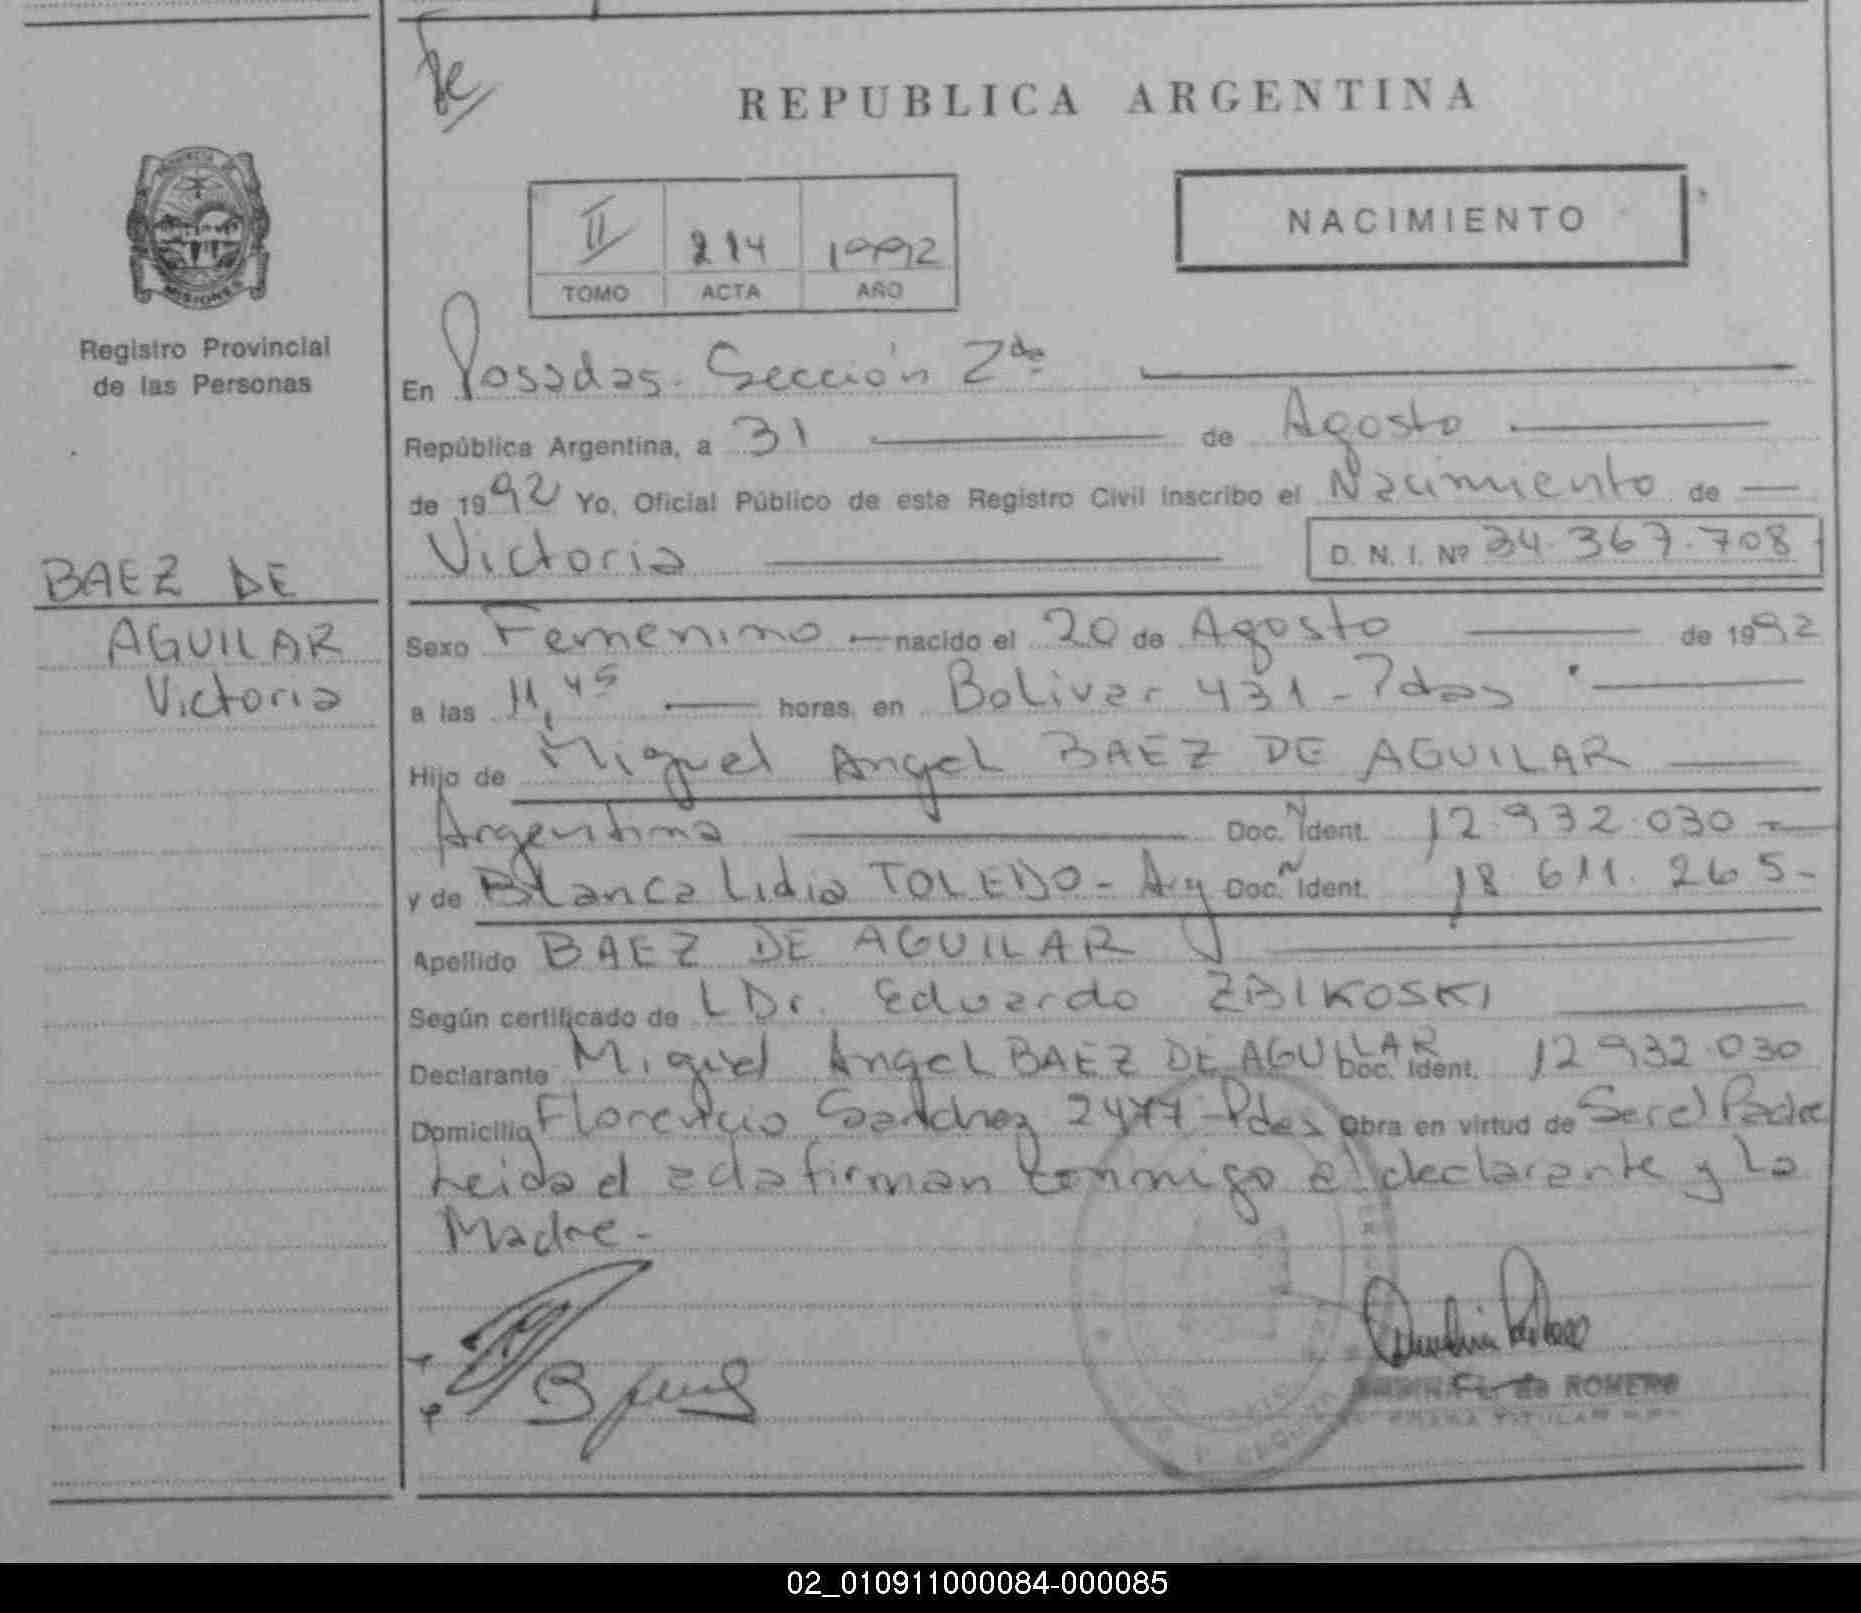 REPUBLICA ARGENTINA
NACIMIENTO
II 214 1992
TOMO ACTA AÑO
MISIONES
Registro Provincial
de las Personas
BAEZ DE
AGUILAR
Victoria
En Posadas. Sección 2da
República Argentina, a 31 de Agosto
de 1992 Yo, Oficial Público de este Registro Civil inscribo el Nacimiento de
Victoria D. N. I. Nº 34.367.708
Sexo Femenino nacido el 20 de Agosto de 1992
a las 11,45 horas, en Bolivar 431 - Pdas
Hijo de Miguel Angel BAEZ DE AGUILAR
Argentina Doc. Ident. 12.932.030
y de Blanca Lidia TOLEDO - Arg Doc. Ident. 18.611.265-
Apellido BAEZ DE AGUILAR
Según certificado de LDr. Eduardo ZBIKOSKI
Declarante Miguel Angel BAEZ DE AGUILAR Doc. Ident. 12.932.030
Domicilio Florencio Sanchez - Pdas Obra en virtud de Ser el Padre
Leida el acta firman conmigo el declarante y la
Madre.-
de ROMERO
02_010911000084-000085